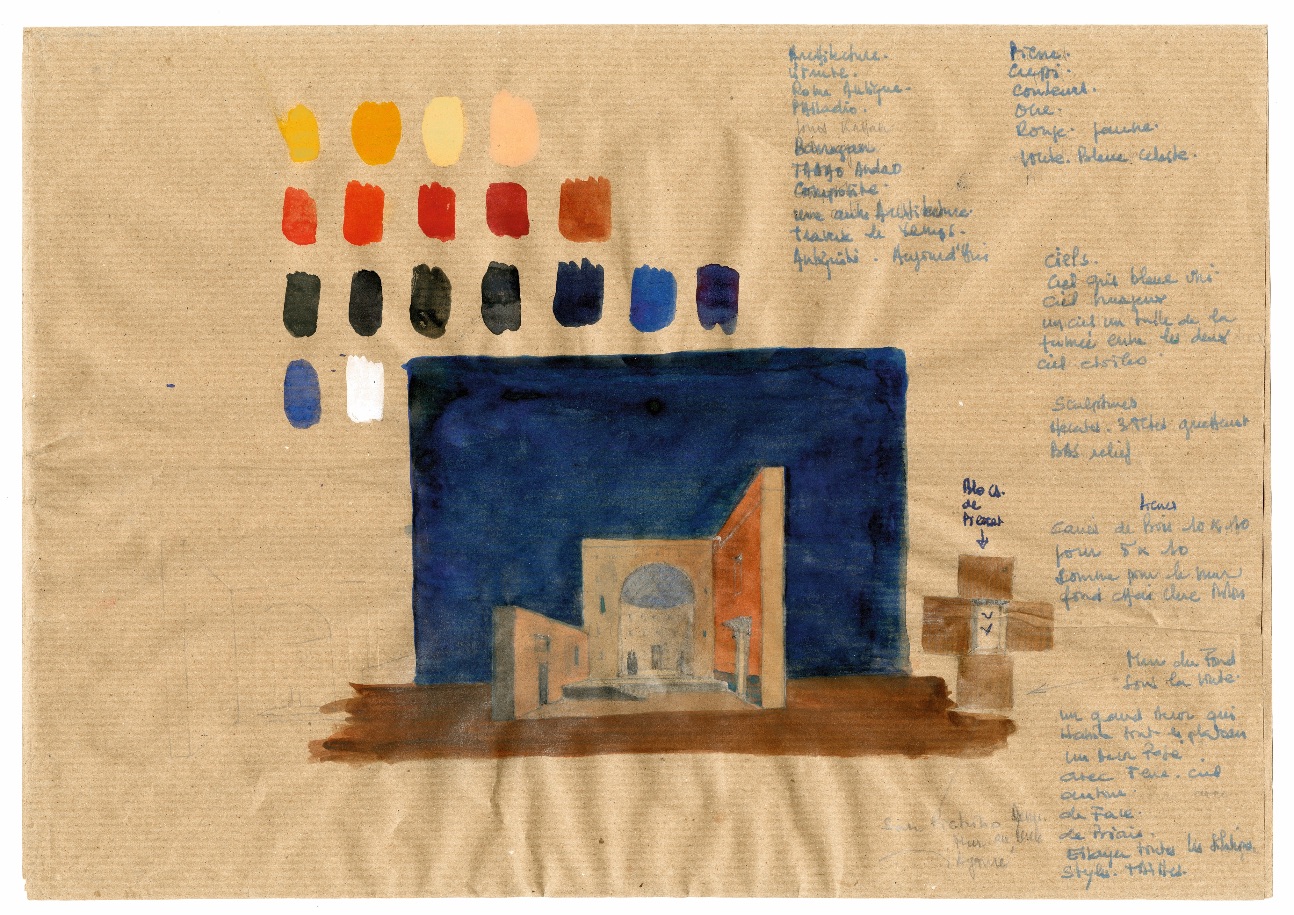 Architecture.
Rome Antique.
Palladio.
Louis Kahn
Barragan
TADAO Andao
Composite.
une autre Architecture.
travers le temps.
Antiquité. Aujourd'hui
Pierre.
Crepi.
Couleurs.
Ocre.
Rouge. jaune.
voute. Bleue celeste.
ciels.
ciel gris bleue
ciel nuageux
un ciel un tulle de la
fumée entre les deux
ciel étoilé
Sculptures
Bas relief
Blocs.
de
Pierres
de Bois 10 x 10
pour 5 x 10
comme pour le mur
fond
Mur du Fond
sous la voute.
un grand decor qui
tout le plateau
un decor Posé.
avec Terre. ciel
autour.
de Face.
de Biais.
Essayer toutes les
styles. TAILLES.